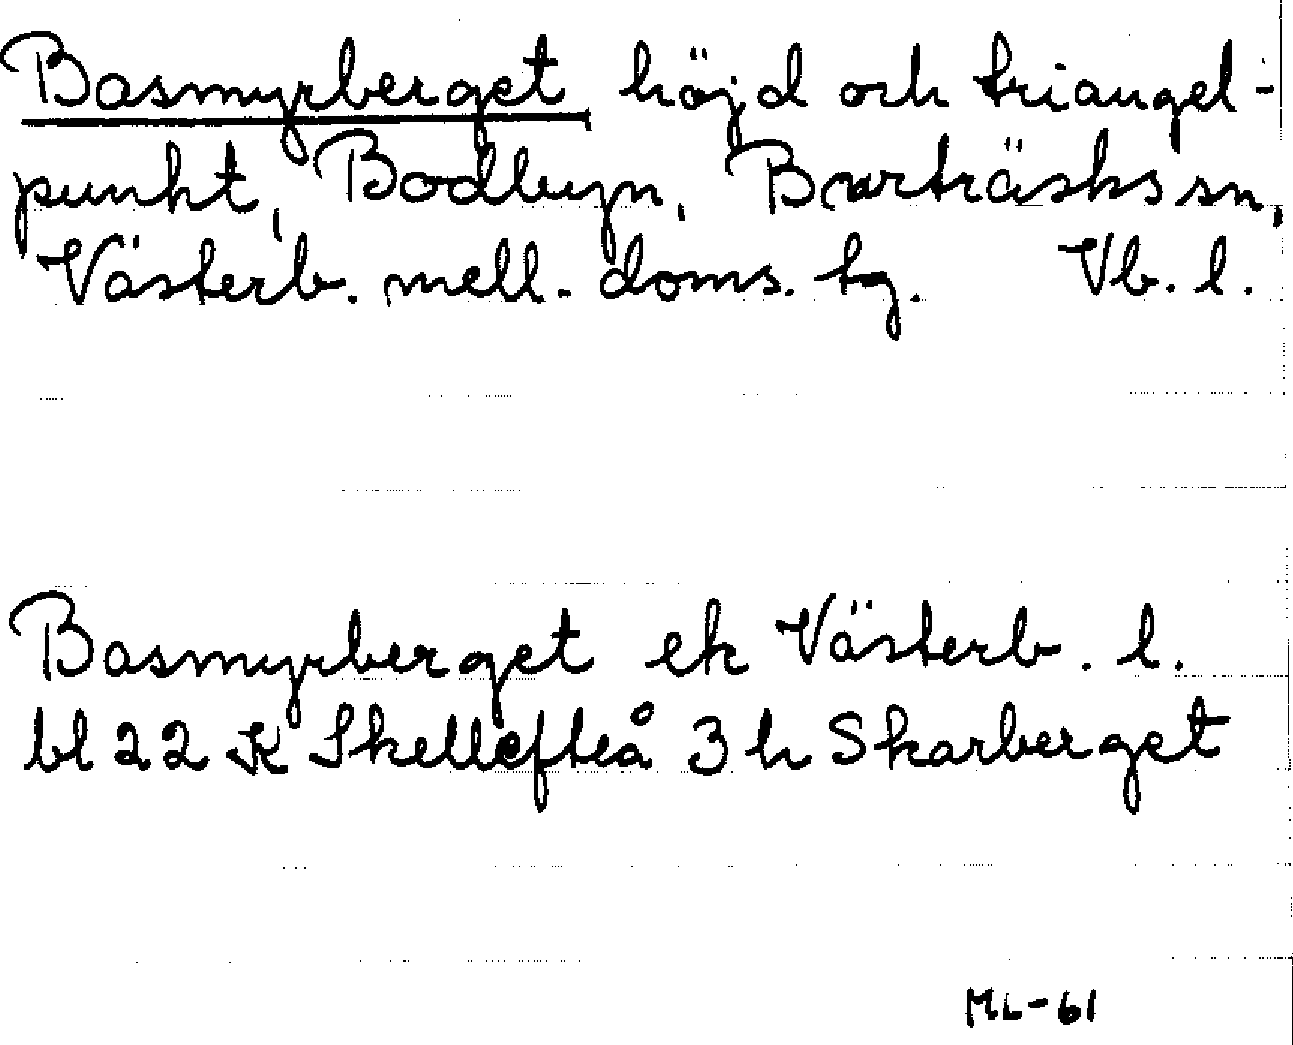 Basmyrberget, höjd och triangel-
punkt, Bodbyn, Burträsks sn,
Västerb. mell. doms. tg. Vb. l.
Basmyrberget ek Västerb. l.
bl 22 K Skellefteå 3 h Skarberget
ML-61